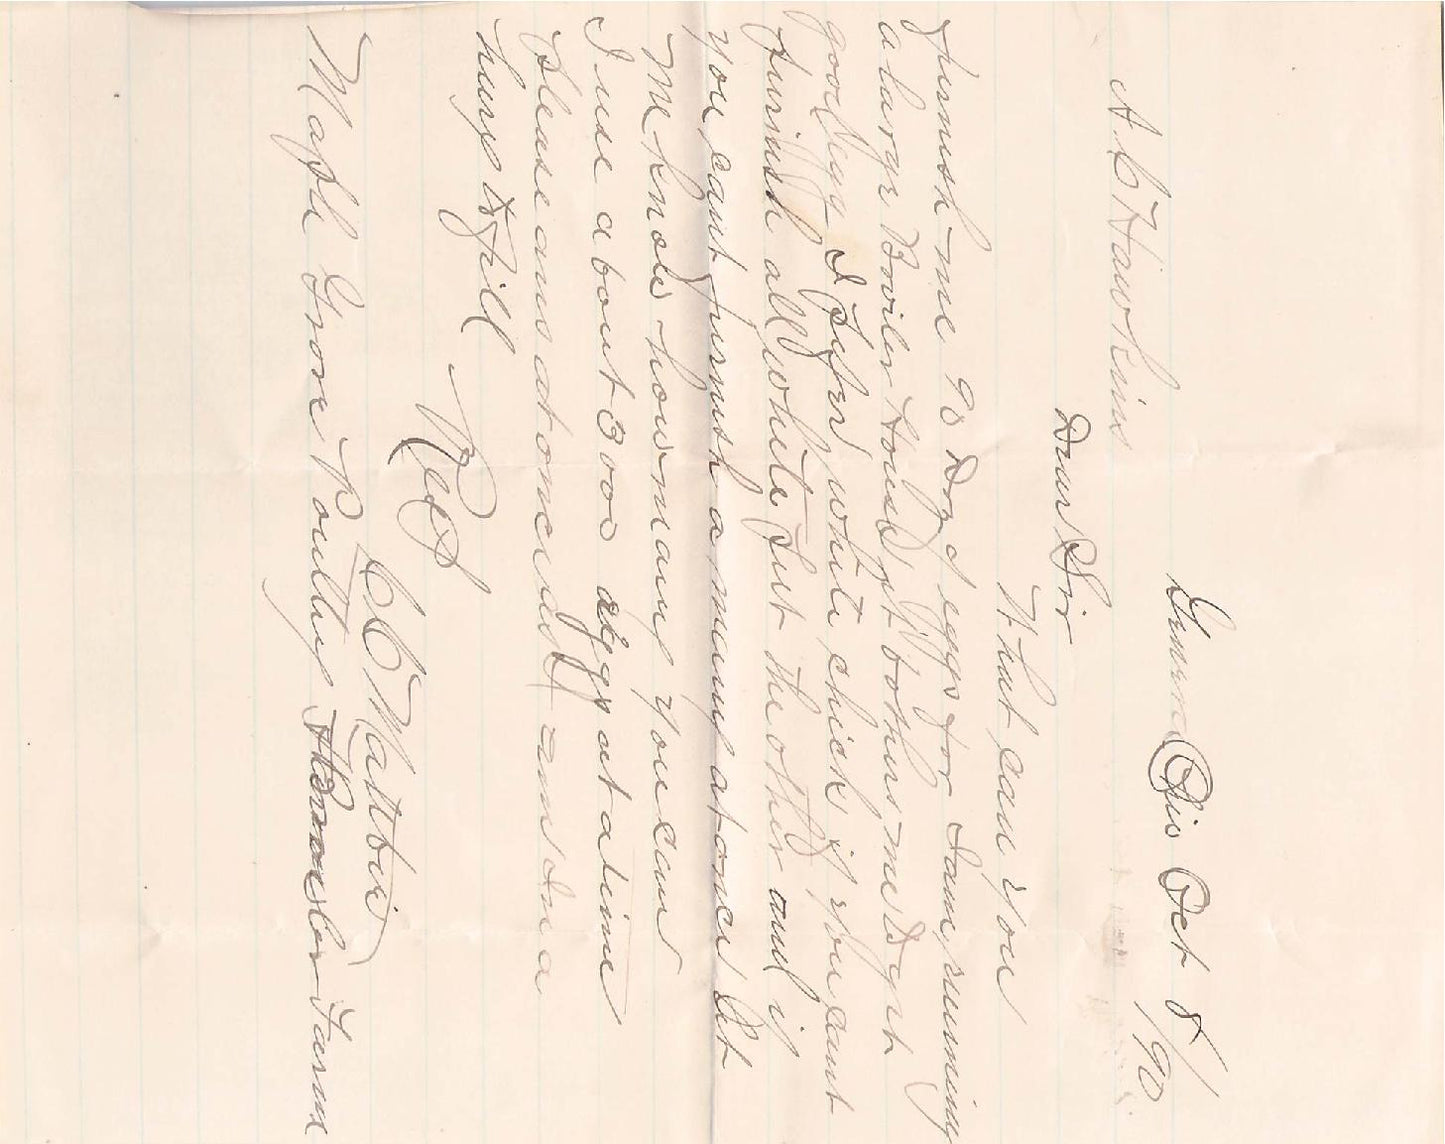 Oct 8/90
A. C Hawkins
Dear Sir
What can you
furnish me 90 Doz eggs for I am running
a large Broiler House, it bothers me to get
good eggs I prefer white chicks if you cant
furnish all white put the other and if
you cant furnish a many at once let
me know how many you can
I use about 3000 eggs at a time
Please ans at once ans in a
hury
Res
C C
Maple Grove Poultry Farm